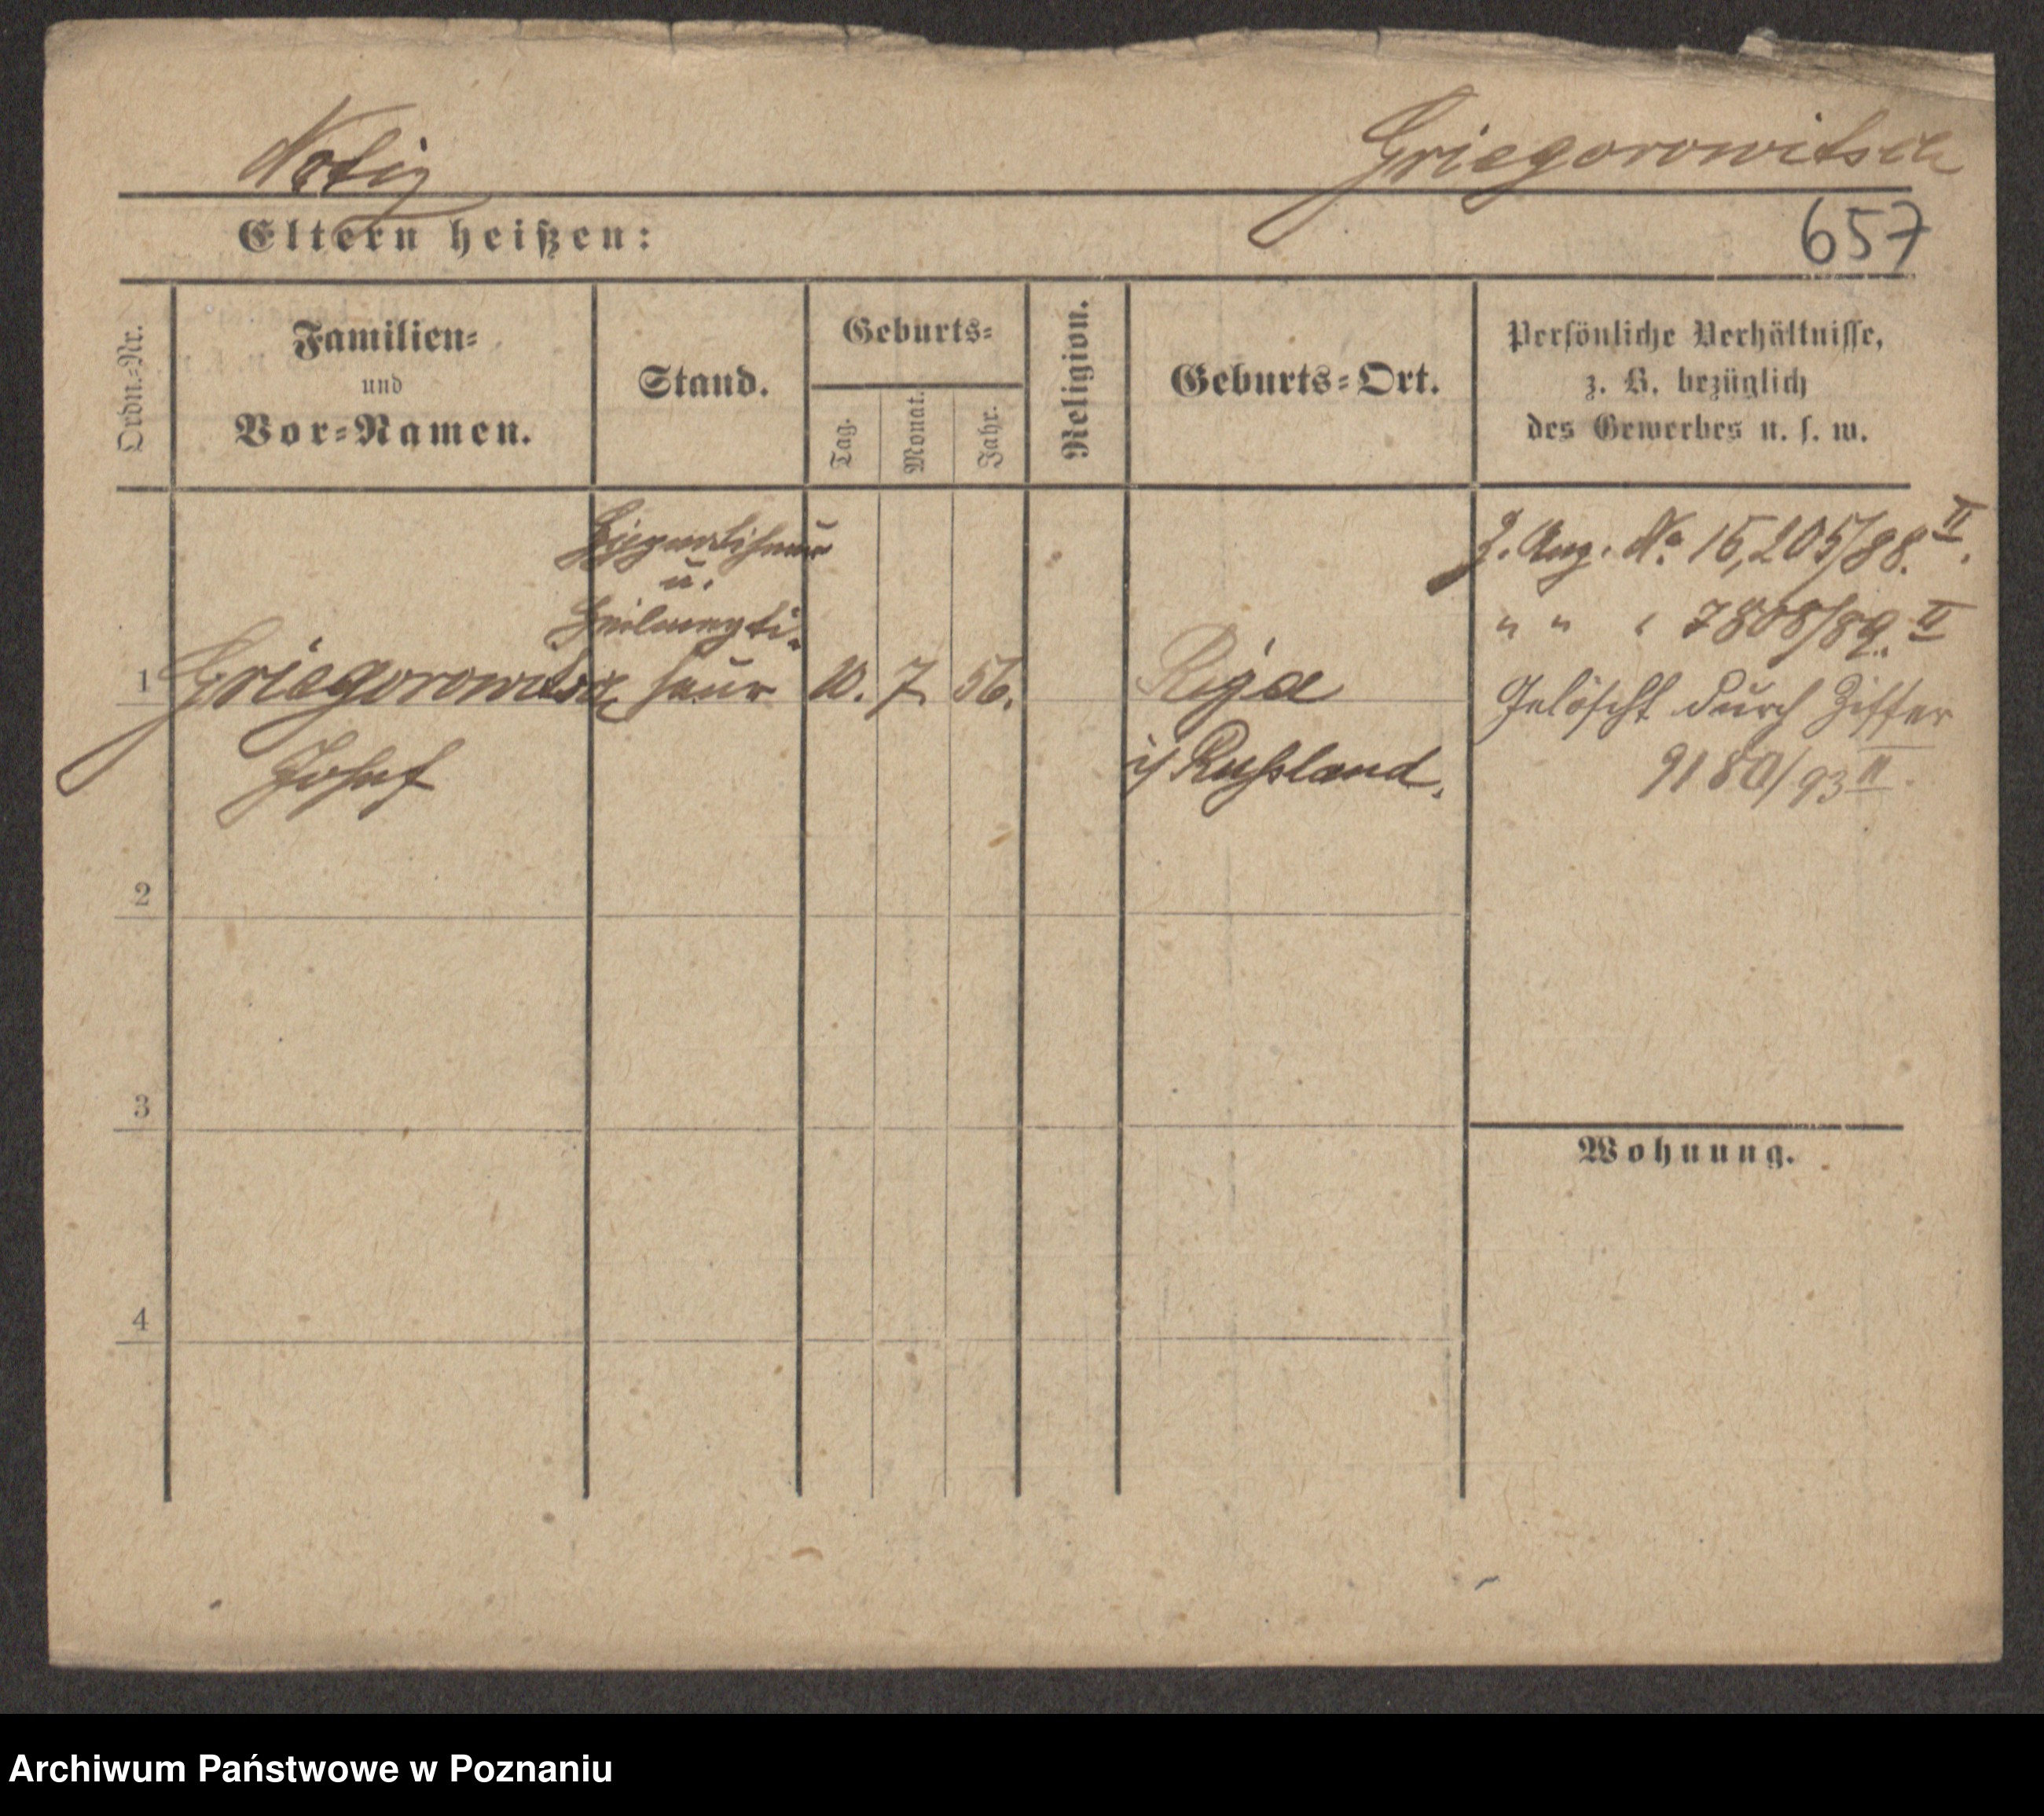 Notiz
Griegorowitsch
Eltern heißen:
657
Ordn.=Nr.
Familien=
und
Vor=Namen.
Stand.
Geburts=
Tag.
Monat.
Jahr.
Religion.
Geburts=Ort.
Persönliche Verhältnisse,
z. B. bezüglich
des Gewerbes u. s. w.
u.
1 Griegorowitsch seur 10. 7 56. Riga
Josef
i/ Russland.
Z. Ang. No. 15,205/88. II.
" " " 7808/89. II
Gelöscht durch Ziffer
9180/93 II.
2
3
Wohnung.
4
Archiwum Państwowe w Poznaniu